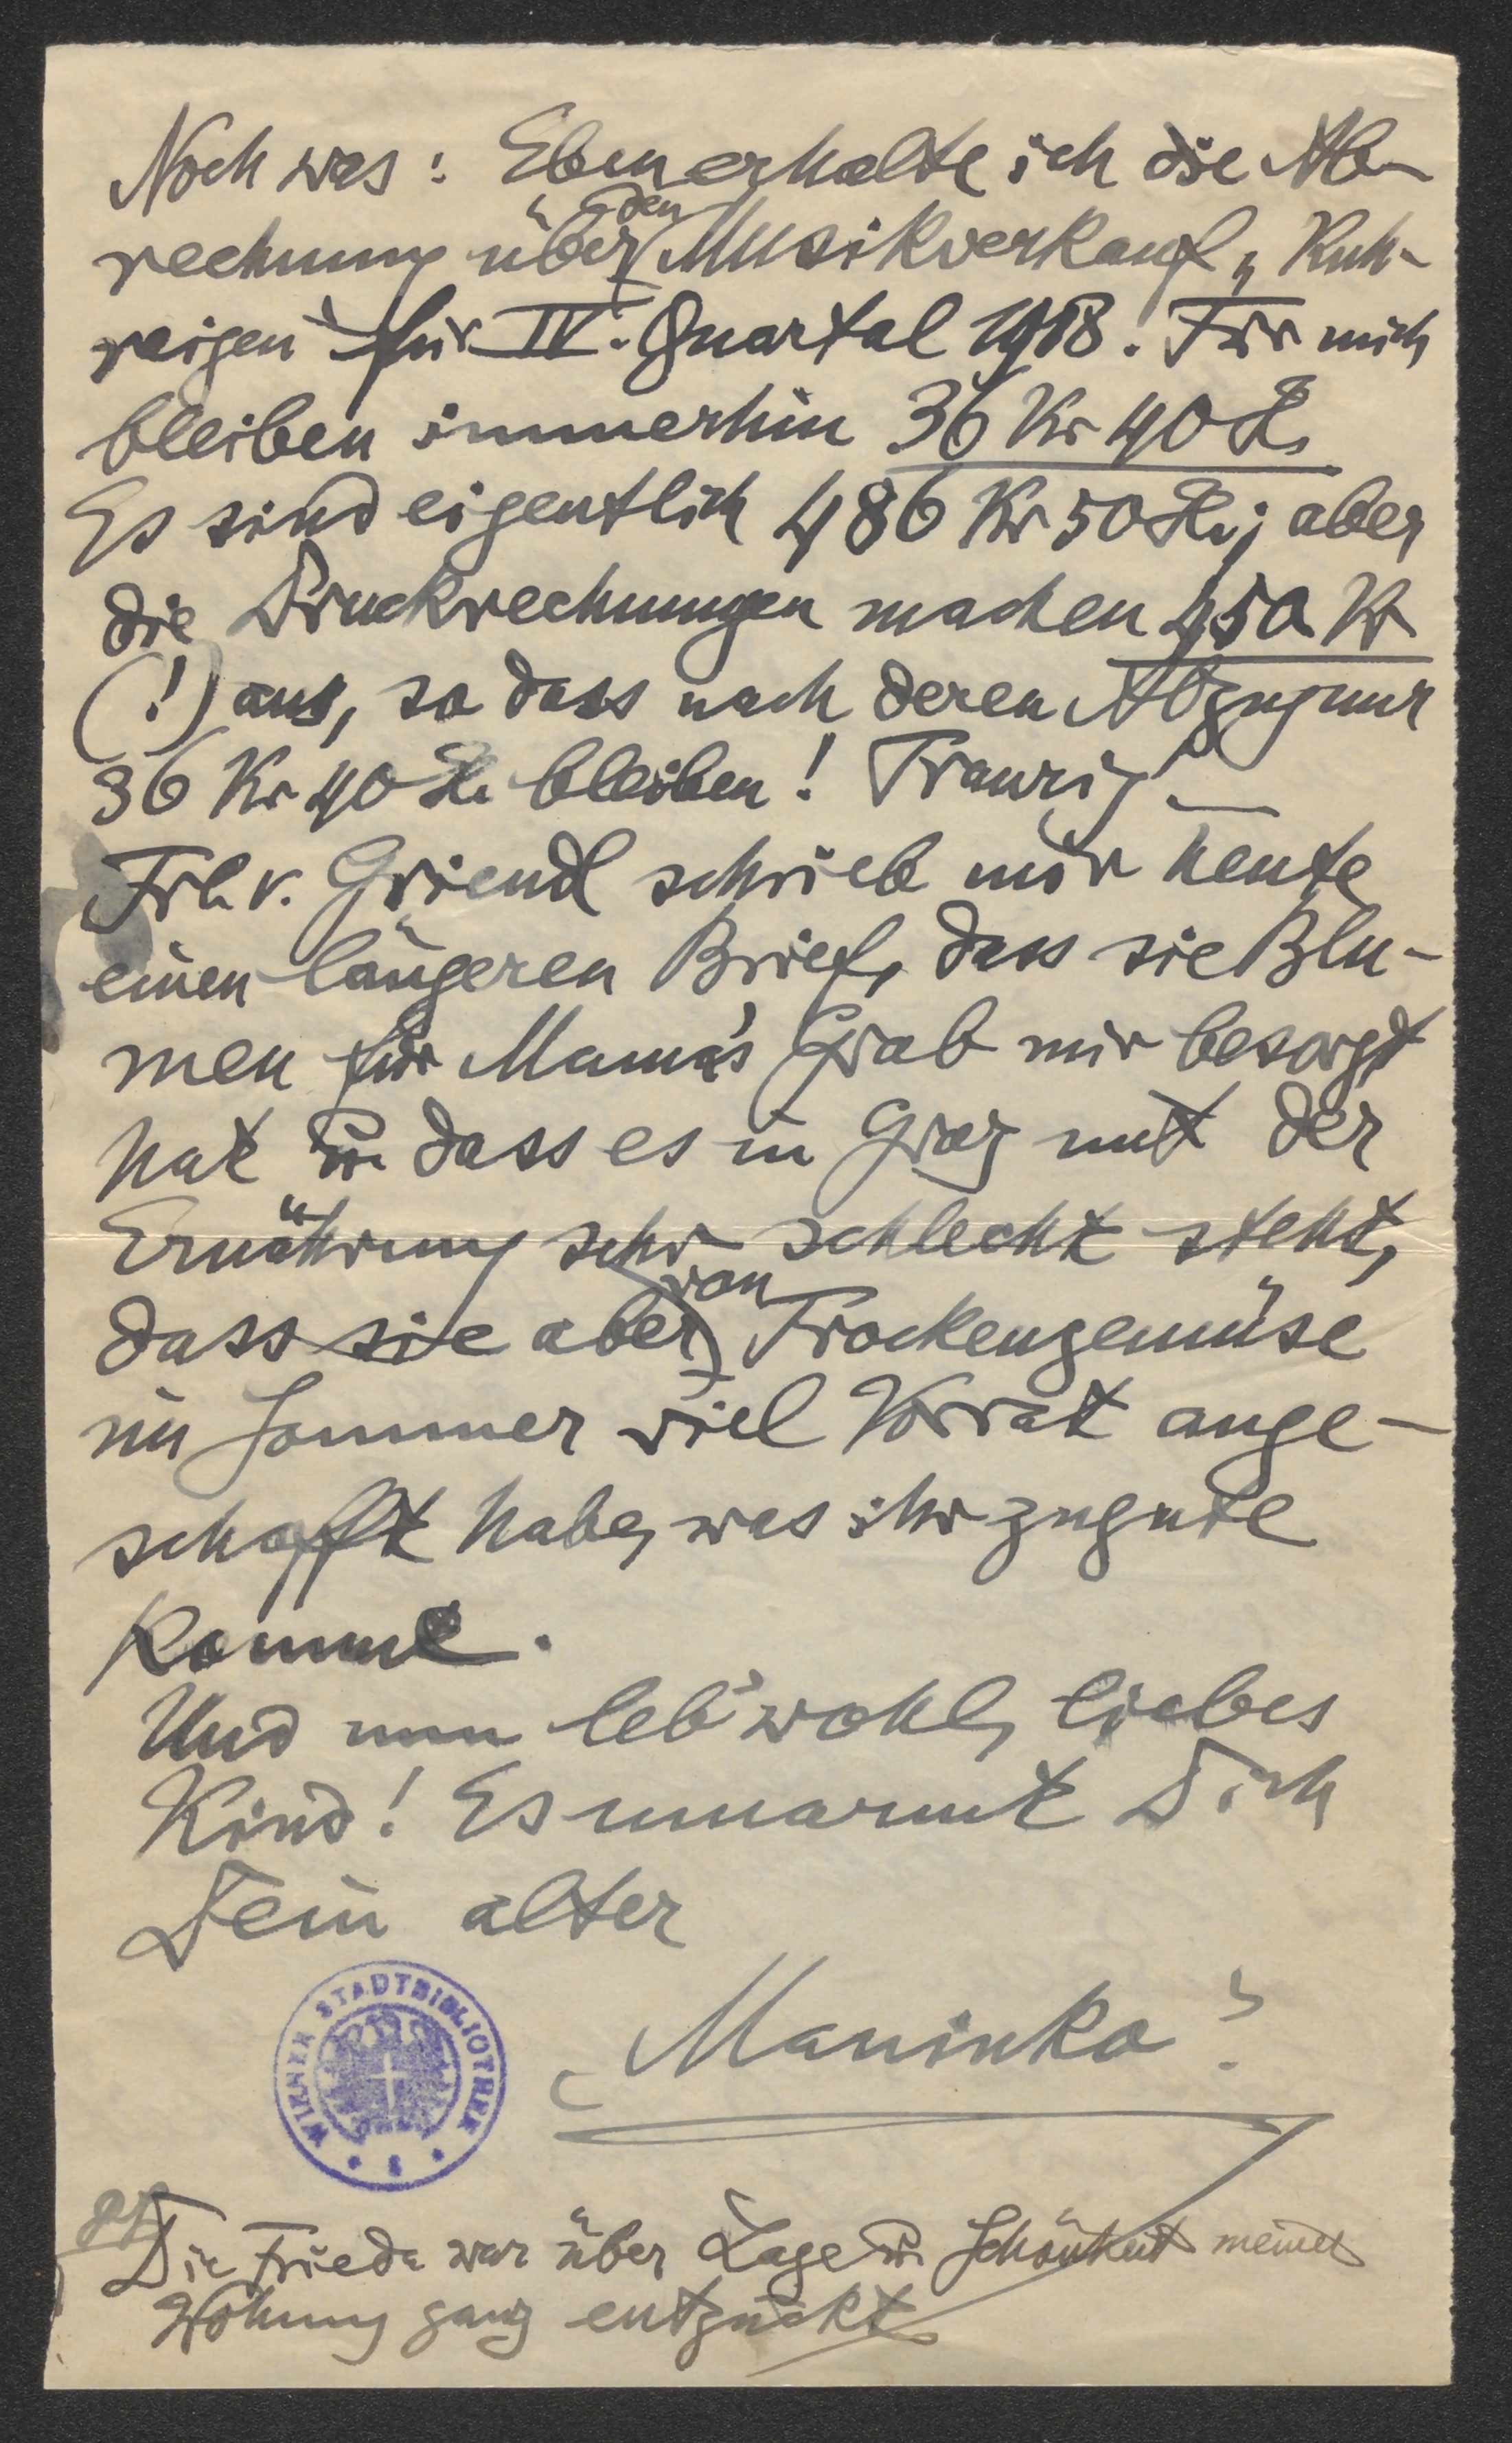 Noch was: Eben erhalte ich die Ab-
rechnung über den Musikverkauf „Kuh-
reigen“ für IV. Quartal 1918. Für mich
bleiben immerhin 36 Kr 40 H.
Es sind eigentlich 486 Kr 50 H.; aber
die Druckrechnungen machen 450 Kr
(!) aus, so dass nach deren Abzug nur
36 Kr 40 H. bleiben! Traurig! —
Frl. v. Griendl schrieb mir heute
einen längeren Brief, dass sie Blu-
men für Mama's Grab mir besorgt
hat u. dass es in Graz mit der
Ernährung sehr schlecht steht,
dass sie aber von Trockengemüse
im Sommer viel Vorrat ange-
schafft habe, was ihr zugute
komme.
Und nun leb' wohl, liebes
Kind! Es umarmt Dich
Dein alter
„Maninko“.
WIENER STADTBIBLIOTHEK
PS
Die Frieda war über Lage u. Schönheit meiner
Wohnung ganz entzückt